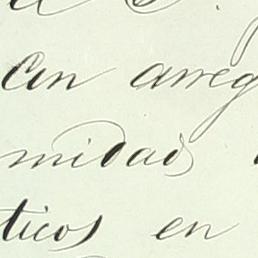 Con arreg
midad
ticos en